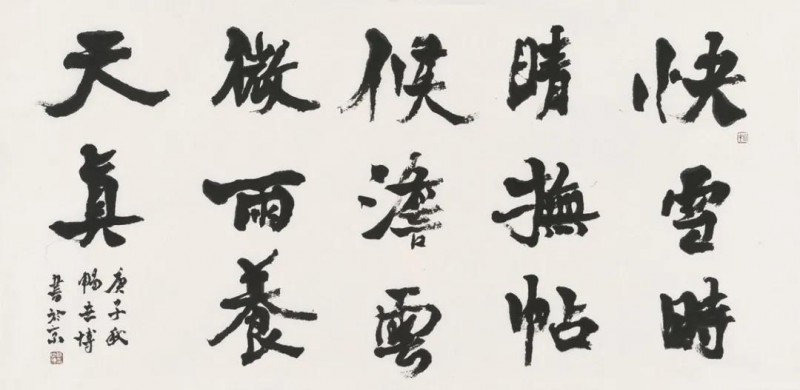 快雪時
晴撫帖
候澹雲
微雨養
天真
庚子秋
暢
書於京